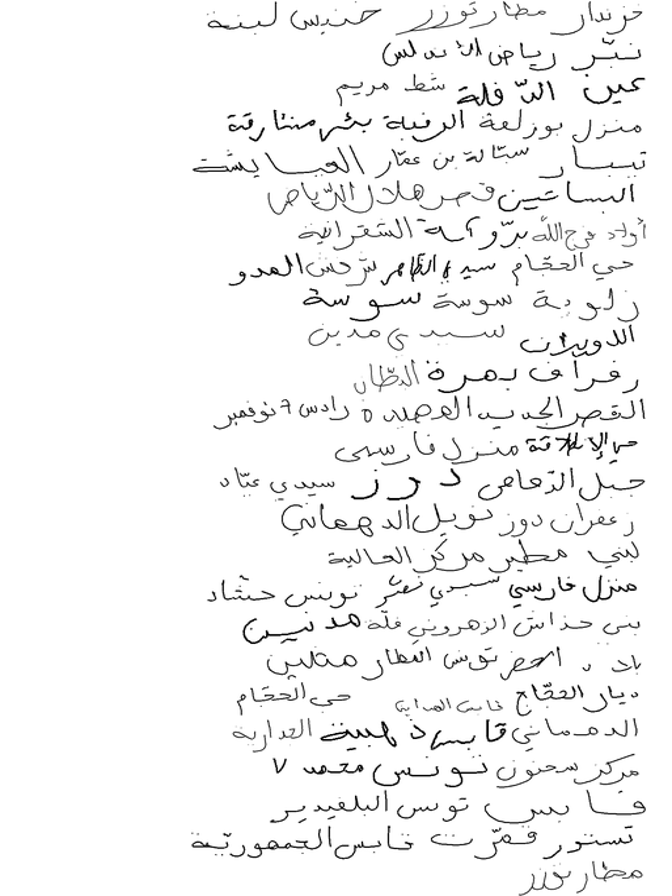 خزندار مطار توزر خنيس لبنة
نبّر رياض الأندلس
عين الدّفلة شط مريم
منزل بوزلفة الرقبة بئر مشارقة
تيبار سبّالة بن عمّار العيايشة
البساتين قصر هلال الرّياض
أولاد فرج الله برّوآتة الشقرانية
حي الحجّام سيدي الظاهر شرحش العدو
زاوية سوسة سوسة
الدويرات سيدي مدين
رفراف بمرة
القصر الجديد رادس 7 نوفمبر
منزل فارسي
جبل سيدي عبّاد
زعفران دوز نويل الدهماني
لبني مطير مركز العالية
منزل فارسي سيدي نصر تونس حشّاد
بني حداش الزهروني قلّة مدنين
تونس المطار
ديار الحجّاج قابس حي الحجّام
الدهماني قابس ذهيبة
مركز سحنون تونس محمد ٧
قابس تونس البلفيدير
تستور قمّرت قابس الجمهوريّة
مطار توزر